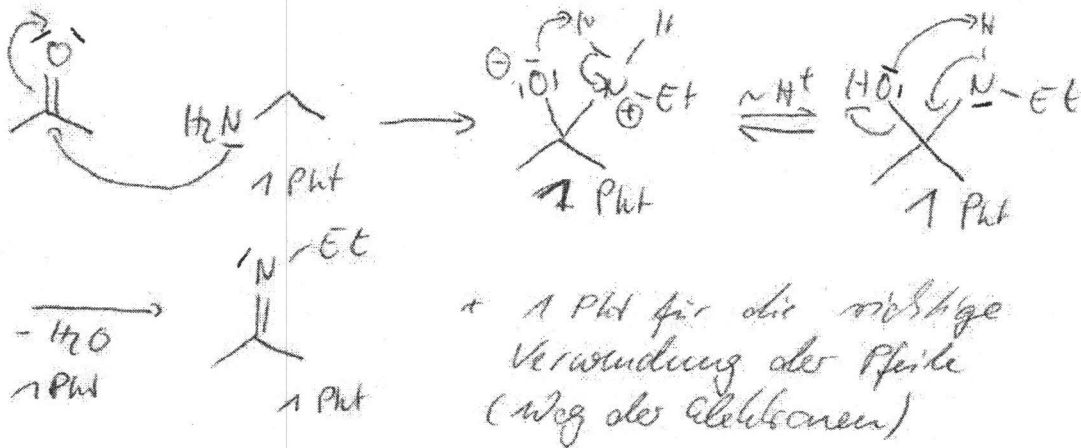 O
H₂N
1 Pkt
⊖ |O| H N H ⊕ Et
1 Pkt
~H⁺
HO| H N Et
1 Pkt
- H₂O
1 Pkt
N Et
1 Pkt
+ 1 Pkt für die richtige
Verwendung der Pfeile
(Weg der Elektronen)